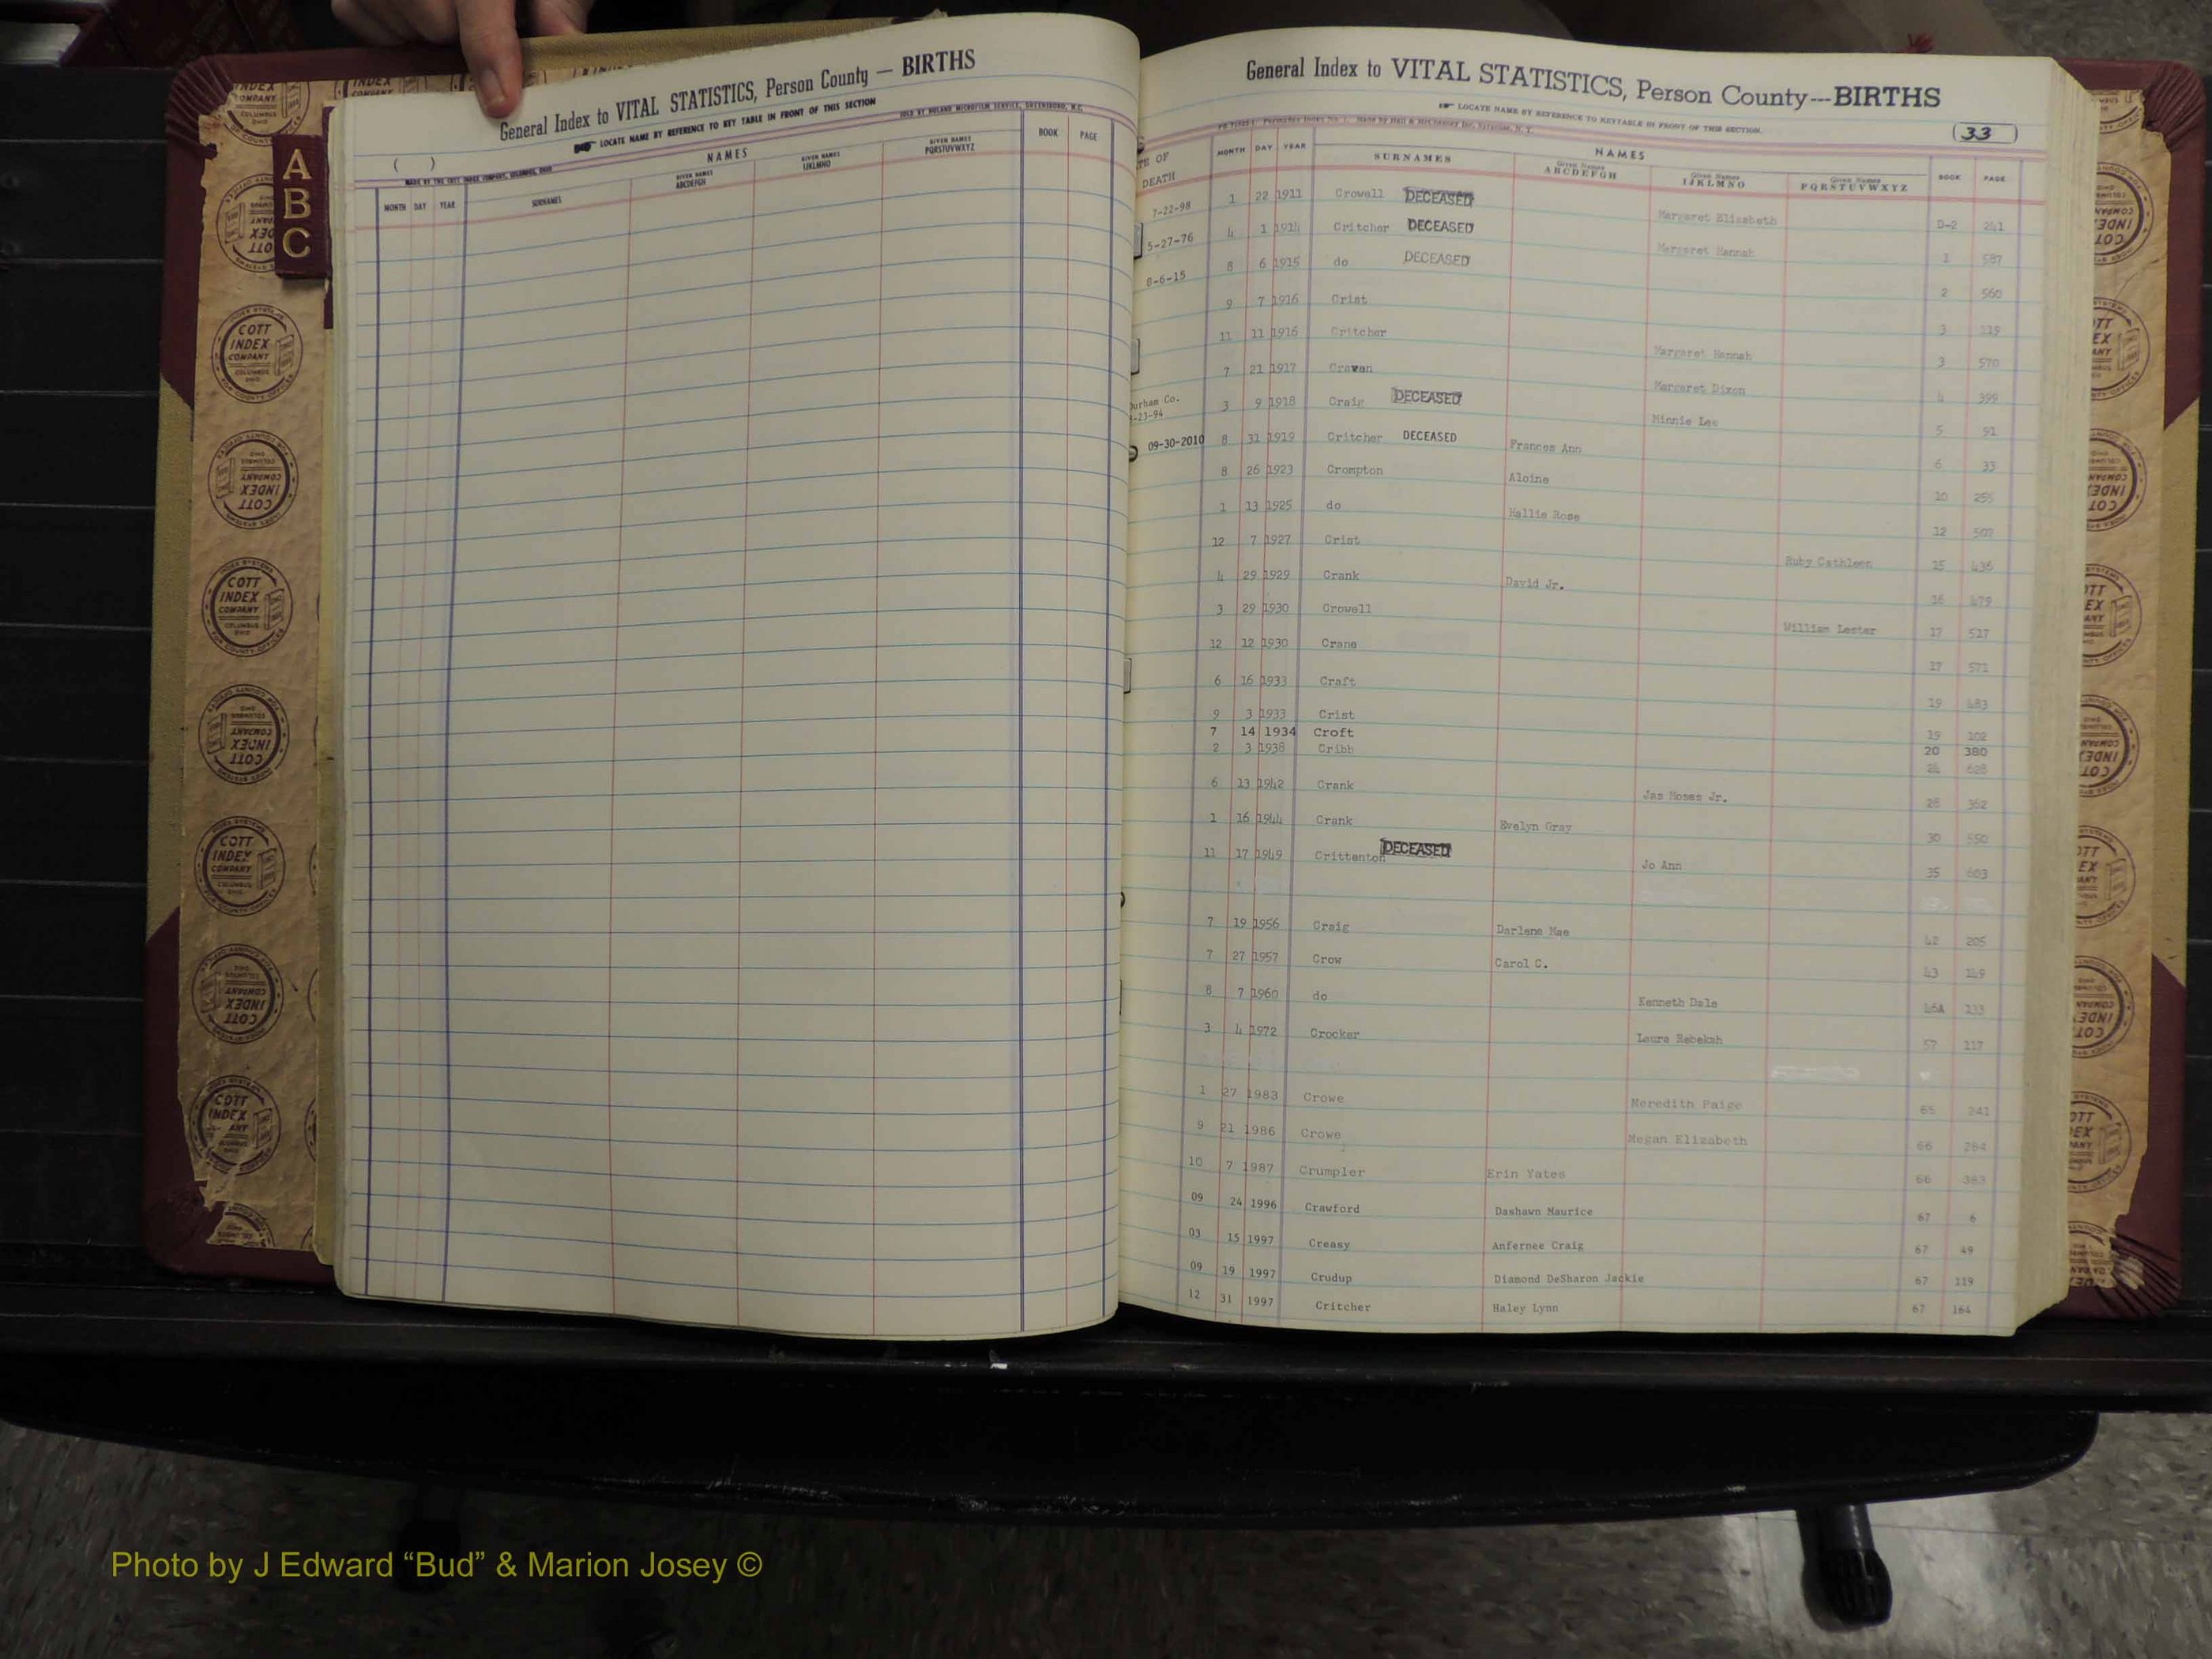 General Index to VITAL STATISTICS, Person County — BIRTHS
LOCATE NAME BY REFERENCE TO KEY TABLE IN FRONT OF THIS SECTION
SOLD BY ROLAND MICROFILM SERVICE, GREENSBORO, N.C.
MADE BY THE COTT INDEX COMPANY, COLUMBUS, OHIO
( )
NAMES
MONTH DAY YEAR SURNAMES GIVEN NAMES ABCDEFGH GIVEN NAMES IJKLMNO GIVEN NAMES PQRSTUVWXYZ BOOK PAGE
A
B
C
COTT INDEX COMPANY COLUMBUS OHIO
General Index to VITAL STATISTICS, Person County---BIRTHS
LOCATE NAME BY REFERENCE TO KEYTABLE IN FRONT OF THIS SECTION.
(33)
NAMES
DEATH MONTH DAY YEAR SURNAMES Given Names ABCDEFGH Given Names IJKLMNO Given Names PQRSTUVWXYZ BOOK PAGE
7-22-98 1 22 1911 Crowell DECEASED Margaret Elizabeth D-2 241
5-27-76 4 1 1914 Critcher DECEASED Margaret Hannah 1 587
8-6-15 8 6 1915 do DECEASED 2 560
9 7 1916 Crist 3 119
11 11 1916 Critcher Margaret Hannah 3 570
7 21 1917 Craven Margaret Dixon 4 399
Durham Co.
-23-94 3 9 1918 Craig DECEASED Minnie Lee 5 91
09-30-2010 8 31 1919 Critcher DECEASED Frances Ann 6 33
8 26 1923 Crompton Aloine 10 255
1 13 1925 do Hallie Rose 12 507
12 7 1927 Crist Ruby Cathleen 15 436
4 29 1929 Crank David Jr. 16 479
3 29 1930 Crowell William Lester 17 517
12 12 1930 Crane 17 571
6 16 1933 Craft 19 483
9 3 1933 Crist 19 102
7 14 1934 Croft 20 380
2 3 1938 Cribb 24 628
6 13 1942 Crank Jas Moses Jr. 28 362
1 16 1944 Crank Evelyn Gray 30 550
11 17 1949 Crittenton DECEASED Jo Ann 35 603
7 19 1956 Craig Darlene Mae 42 205
7 27 1957 Crow Carol C. 43 149
8 7 1960 do Kenneth Dale 46A 133
3 4 1972 Crocker Laura Rebekah 57 117
1 27 1983 Crowe Meredith Paige 65 241
9 21 1986 Crowe Megan Elizabeth 66 284
10 7 1987 Crumpler Erin Yates 66 383
09 24 1996 Crawford Dashawn Maurice 67 6
03 15 1997 Creasy Anfernee Craig 67 49
09 19 1997 Crudup Diamond DeSharon Jackie 67 119
12 31 1997 Critcher Haley Lynn 67 164
Photo by J Edward “Bud” & Marion Josey ©